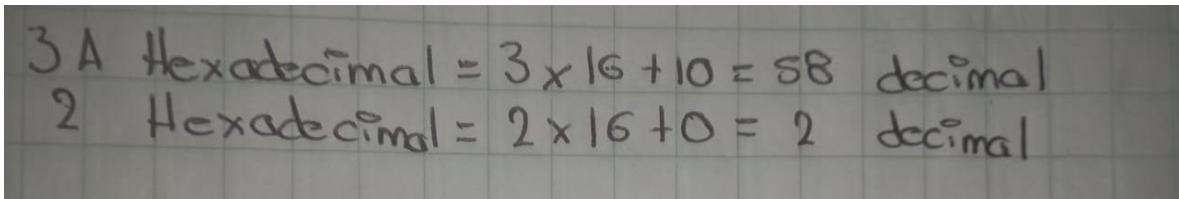 3A Hexadecimal = 3 x 16 + 10 = 58 decimal
2 Hexadecimal = 2 x 16 + 0 = 2 decimal